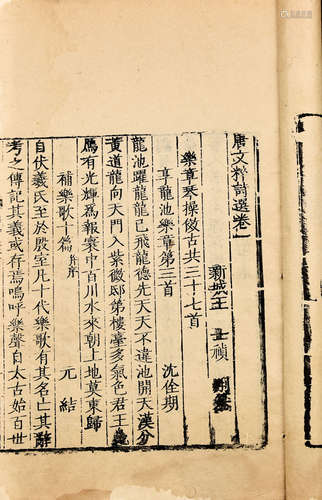 唐文粹詩選卷一
新城王士禛刪纂
樂章琴操倣古共三十七首
享龍池樂章第三首 沈佺期
龍池躍龍龍已飛龍德先天天不違池開天漢分
黃道龍向天門入紫微邸第樓臺多氣色君王鳧
鴈有光輝爲報寰中百川水來朝上地莫東歸
補樂歌十篇 并序 元結
自伏羲氏至於殷室凡十代樂歌有其名亡其辭
考之傳記其義或存焉嗚呼樂聲自太古始百世